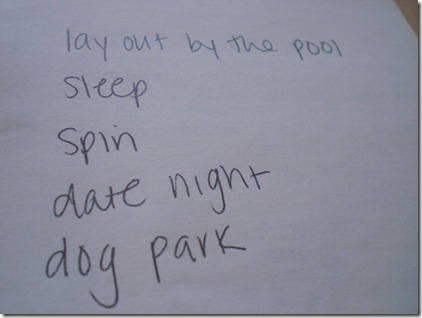 lay out by the pool
sleep
spin
date night
dog park